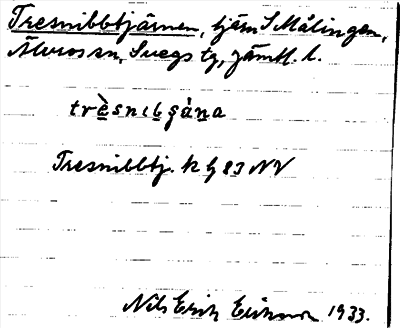 Tresnibbtjärnen, tjärn S Målingen,
Älvros sn, Svegs tg, Jämtl. l.
trèsnıbṣàna
Tresnibbtj. k bl 83 NV
Nils Erik Eriksson 1933.